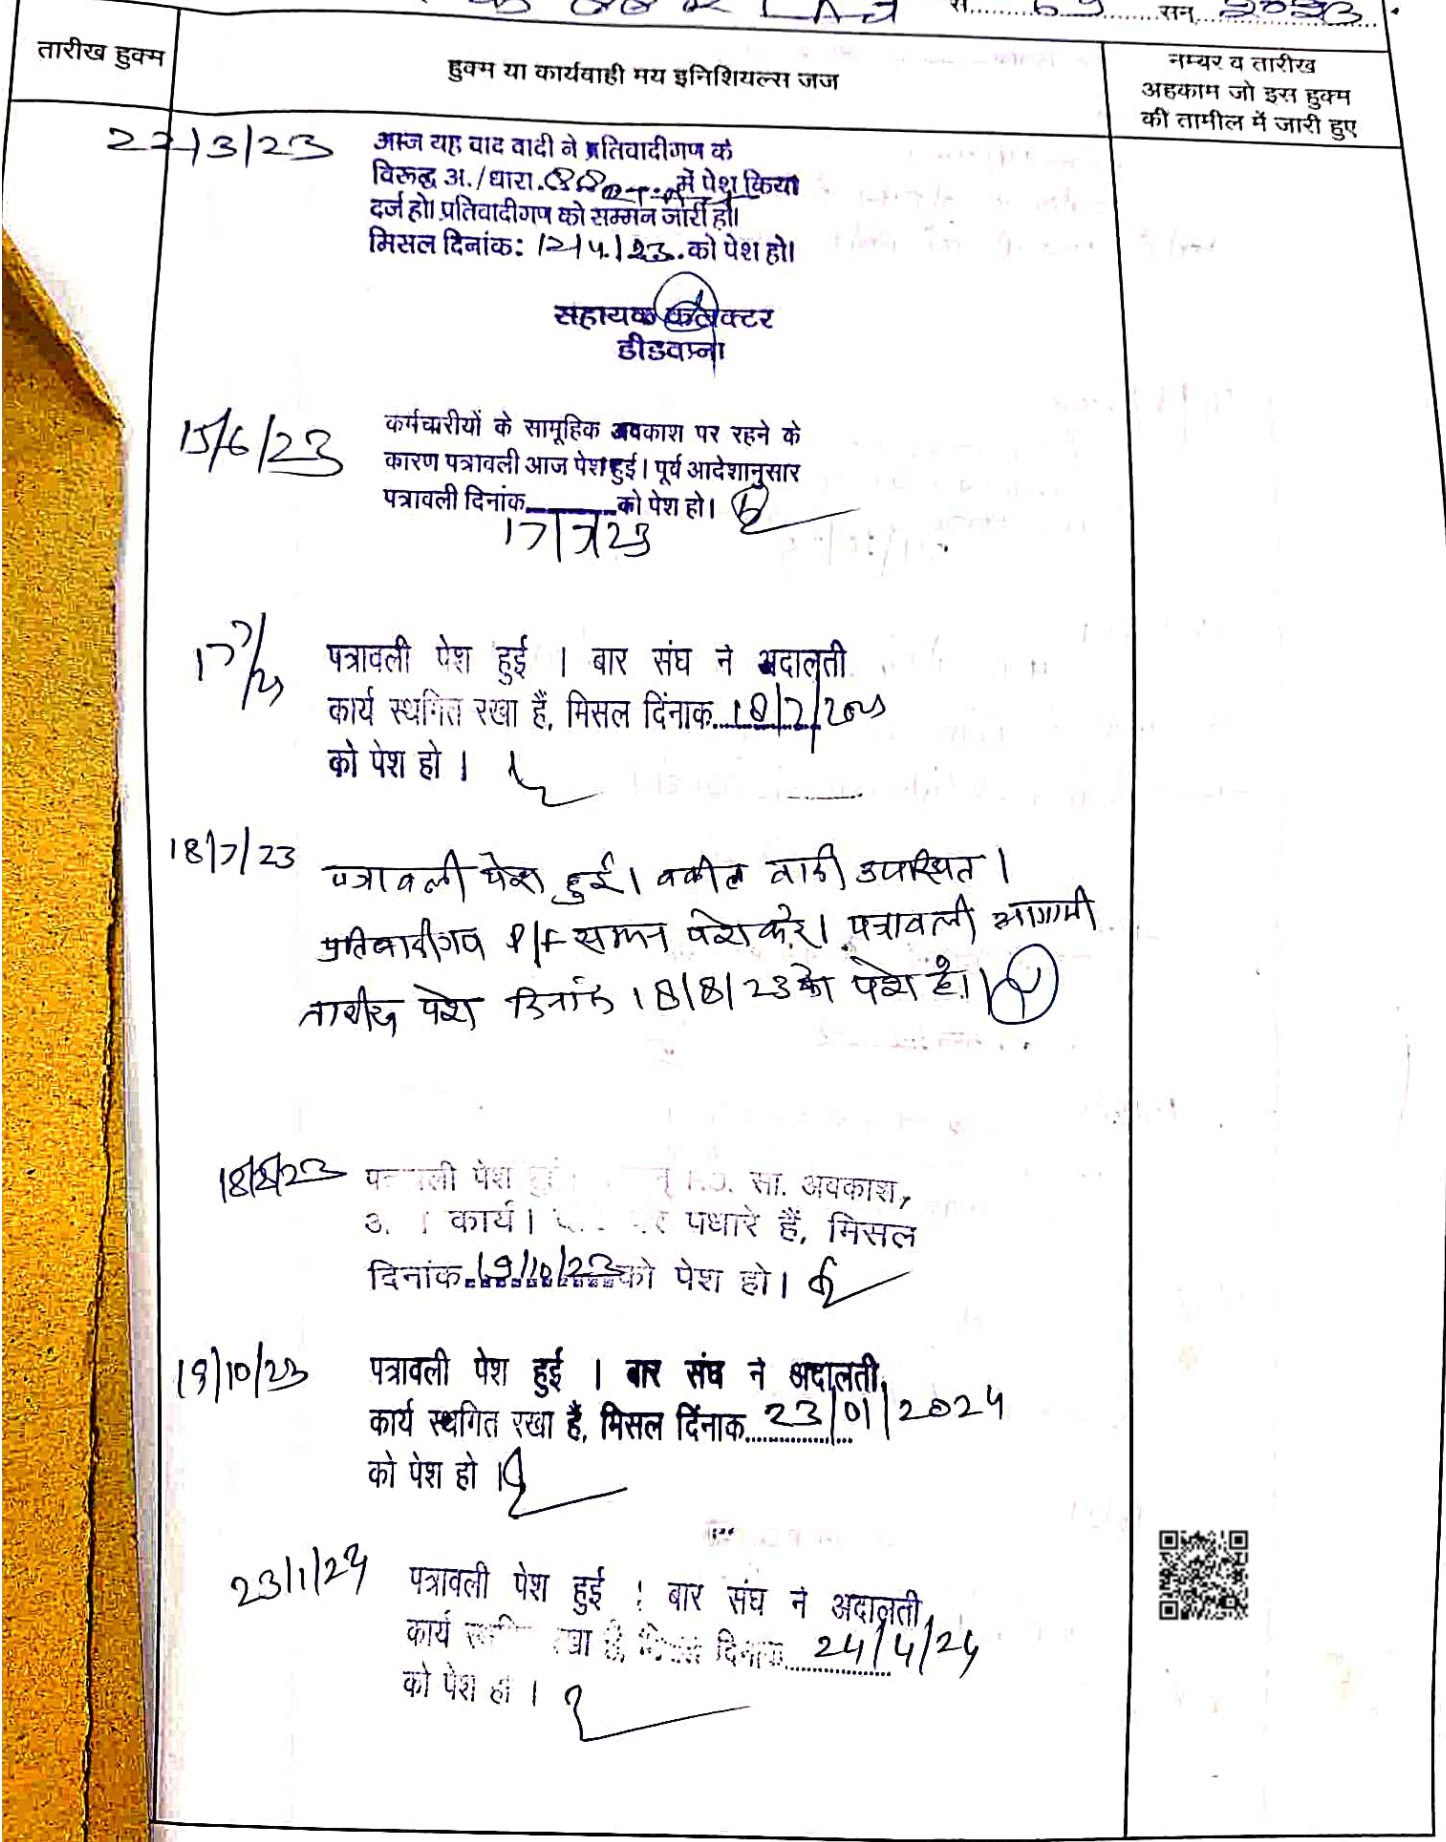 सन् 2023
तारीख हुक्म
हुक्म या कार्यवाही मय इनिशियल्स जज
नम्बर व तारीख
अहकाम जो इस हुक्म
की तामील में जारी हुए
22/3/23
आज यह वाद वादी ने प्रतिवादीगण के
विरूद्ध अ./धारा. में पेश किया
दर्ज हो। प्रतिवादीगण को सम्मन जारी हो।
मिसल दिनांक: 12/4/23 को पेश हो।
सहायक कलेक्टर
डीडवाना
15/6/23
कर्मचारीयों के सामूहिक अवकाश पर रहने के
कारण पत्रावली आज पेश हुई। पूर्व आदेशानुसार
पत्रावली दिनांक को पेश हो।
17/7/23
17/7/23
पत्रावली पेश हुई । बार संघ ने अदालती
कार्य स्थगित रखा हैं, मिसल दिंनाक 18/7/2023
को पेश हो ।
18/7/23
पत्रावली पेश हुई। वकील वादी उपस्थित।
प्रतिवादीगण P/F सम्मन पेश करे। पत्रावली आगामी
तारीख पेशी दिनांक 18/8/23 को पेश हो।
18/8/23
पत्रावली पेश सा. अवकाश,
कार्य। पर पधारे हैं, मिसल
दिनांक 19/10/23 को पेश हो।
19/10/23
पत्रावली पेश हुई । बार संघ ने अदालती
कार्य स्थगित रखा हैं, मिसल दिंनाक 23/01/2024
को पेश हो ।
23/1/24
पत्रावली पेश हुई । बार संघ ने अदालती
कार्य रखा है, मिसल दिनाक 24/4/24
को पेश हो ।